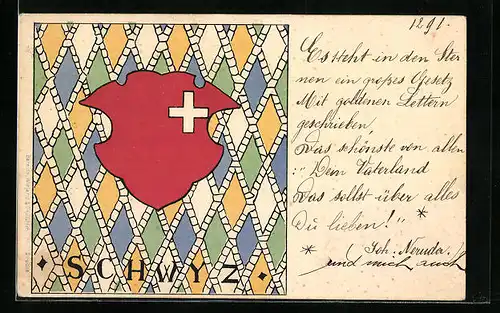 1291.
Es steht in den Ster
nen ein großes Gesetz
Mit goldenen Lettern
geschrieben,
Das schönste von allen
: „Dein Vaterland
Das sollst über alles
Du lieben!" *
* Joh. Neruda.
und mich auch
SCHWYZ